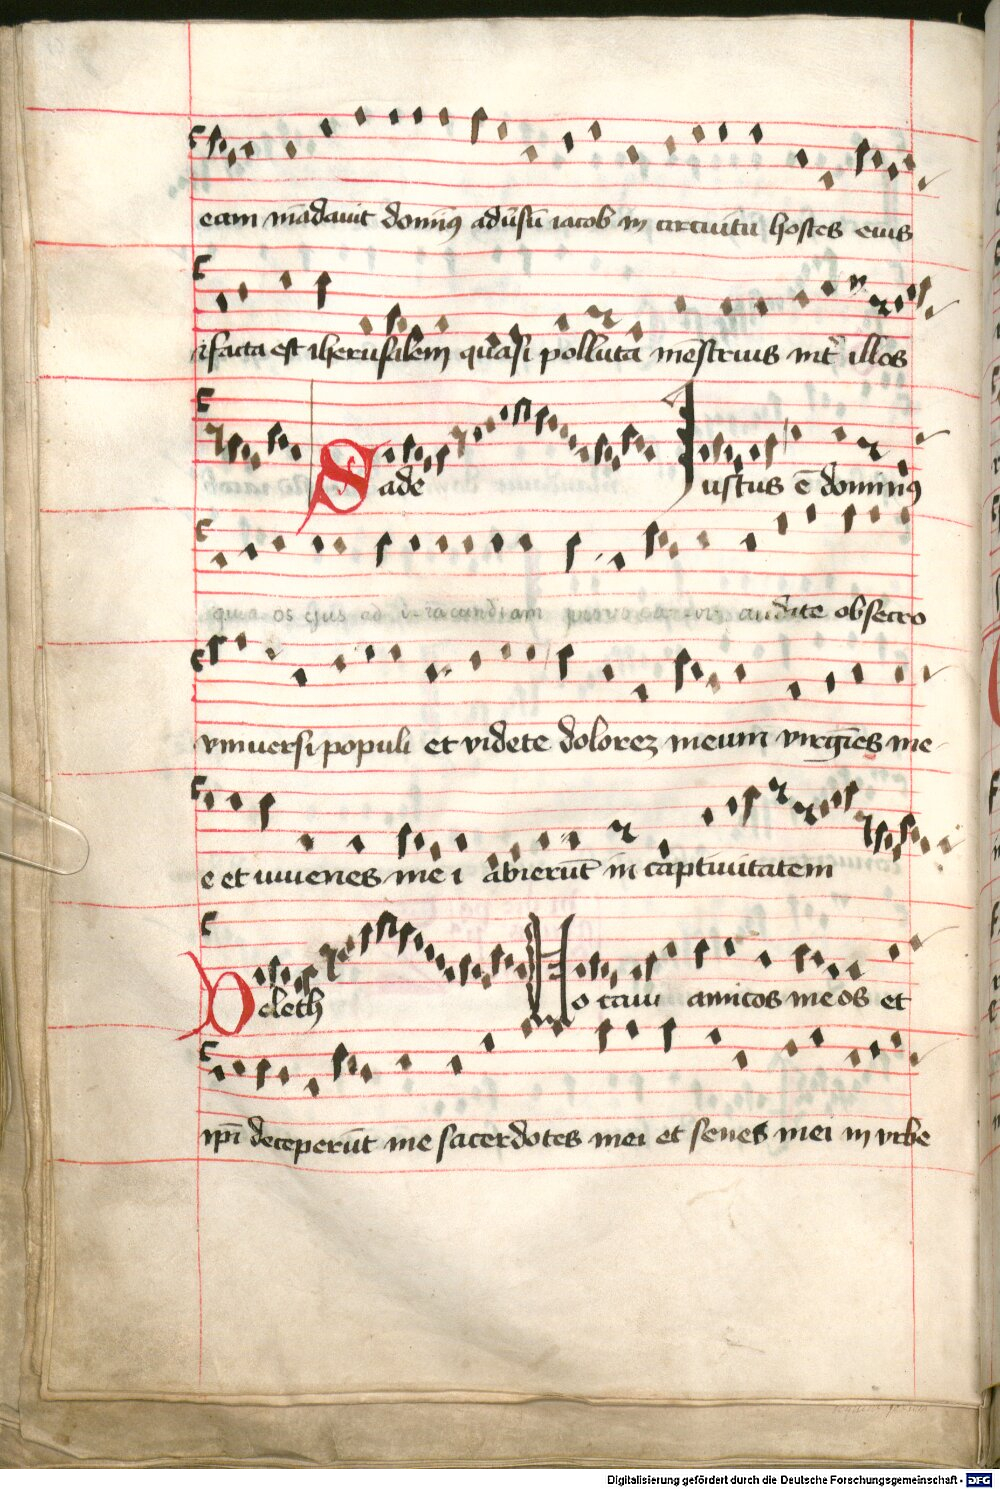 eam mādauit domīꝯ adūsū iacob in circuitu hostes eius
ifacta est iherusalem quasi polluta mēstruis int̄ illos
Sade Iustus ē dominꝯ
quia os ejus ad iracundiam provocavi audite obsecro
vniuersi populi et videte dolorez meum virgīes me
e et iuuenes me i abierūt in captiuitatem
Deleth Uocaui amicos meos et
ip̄i deceperūt me sacerdotes mei et senes mei in vrbe
Digitalisierung gefördert durch die Deutsche Forschungsgemeinschaft - DFG